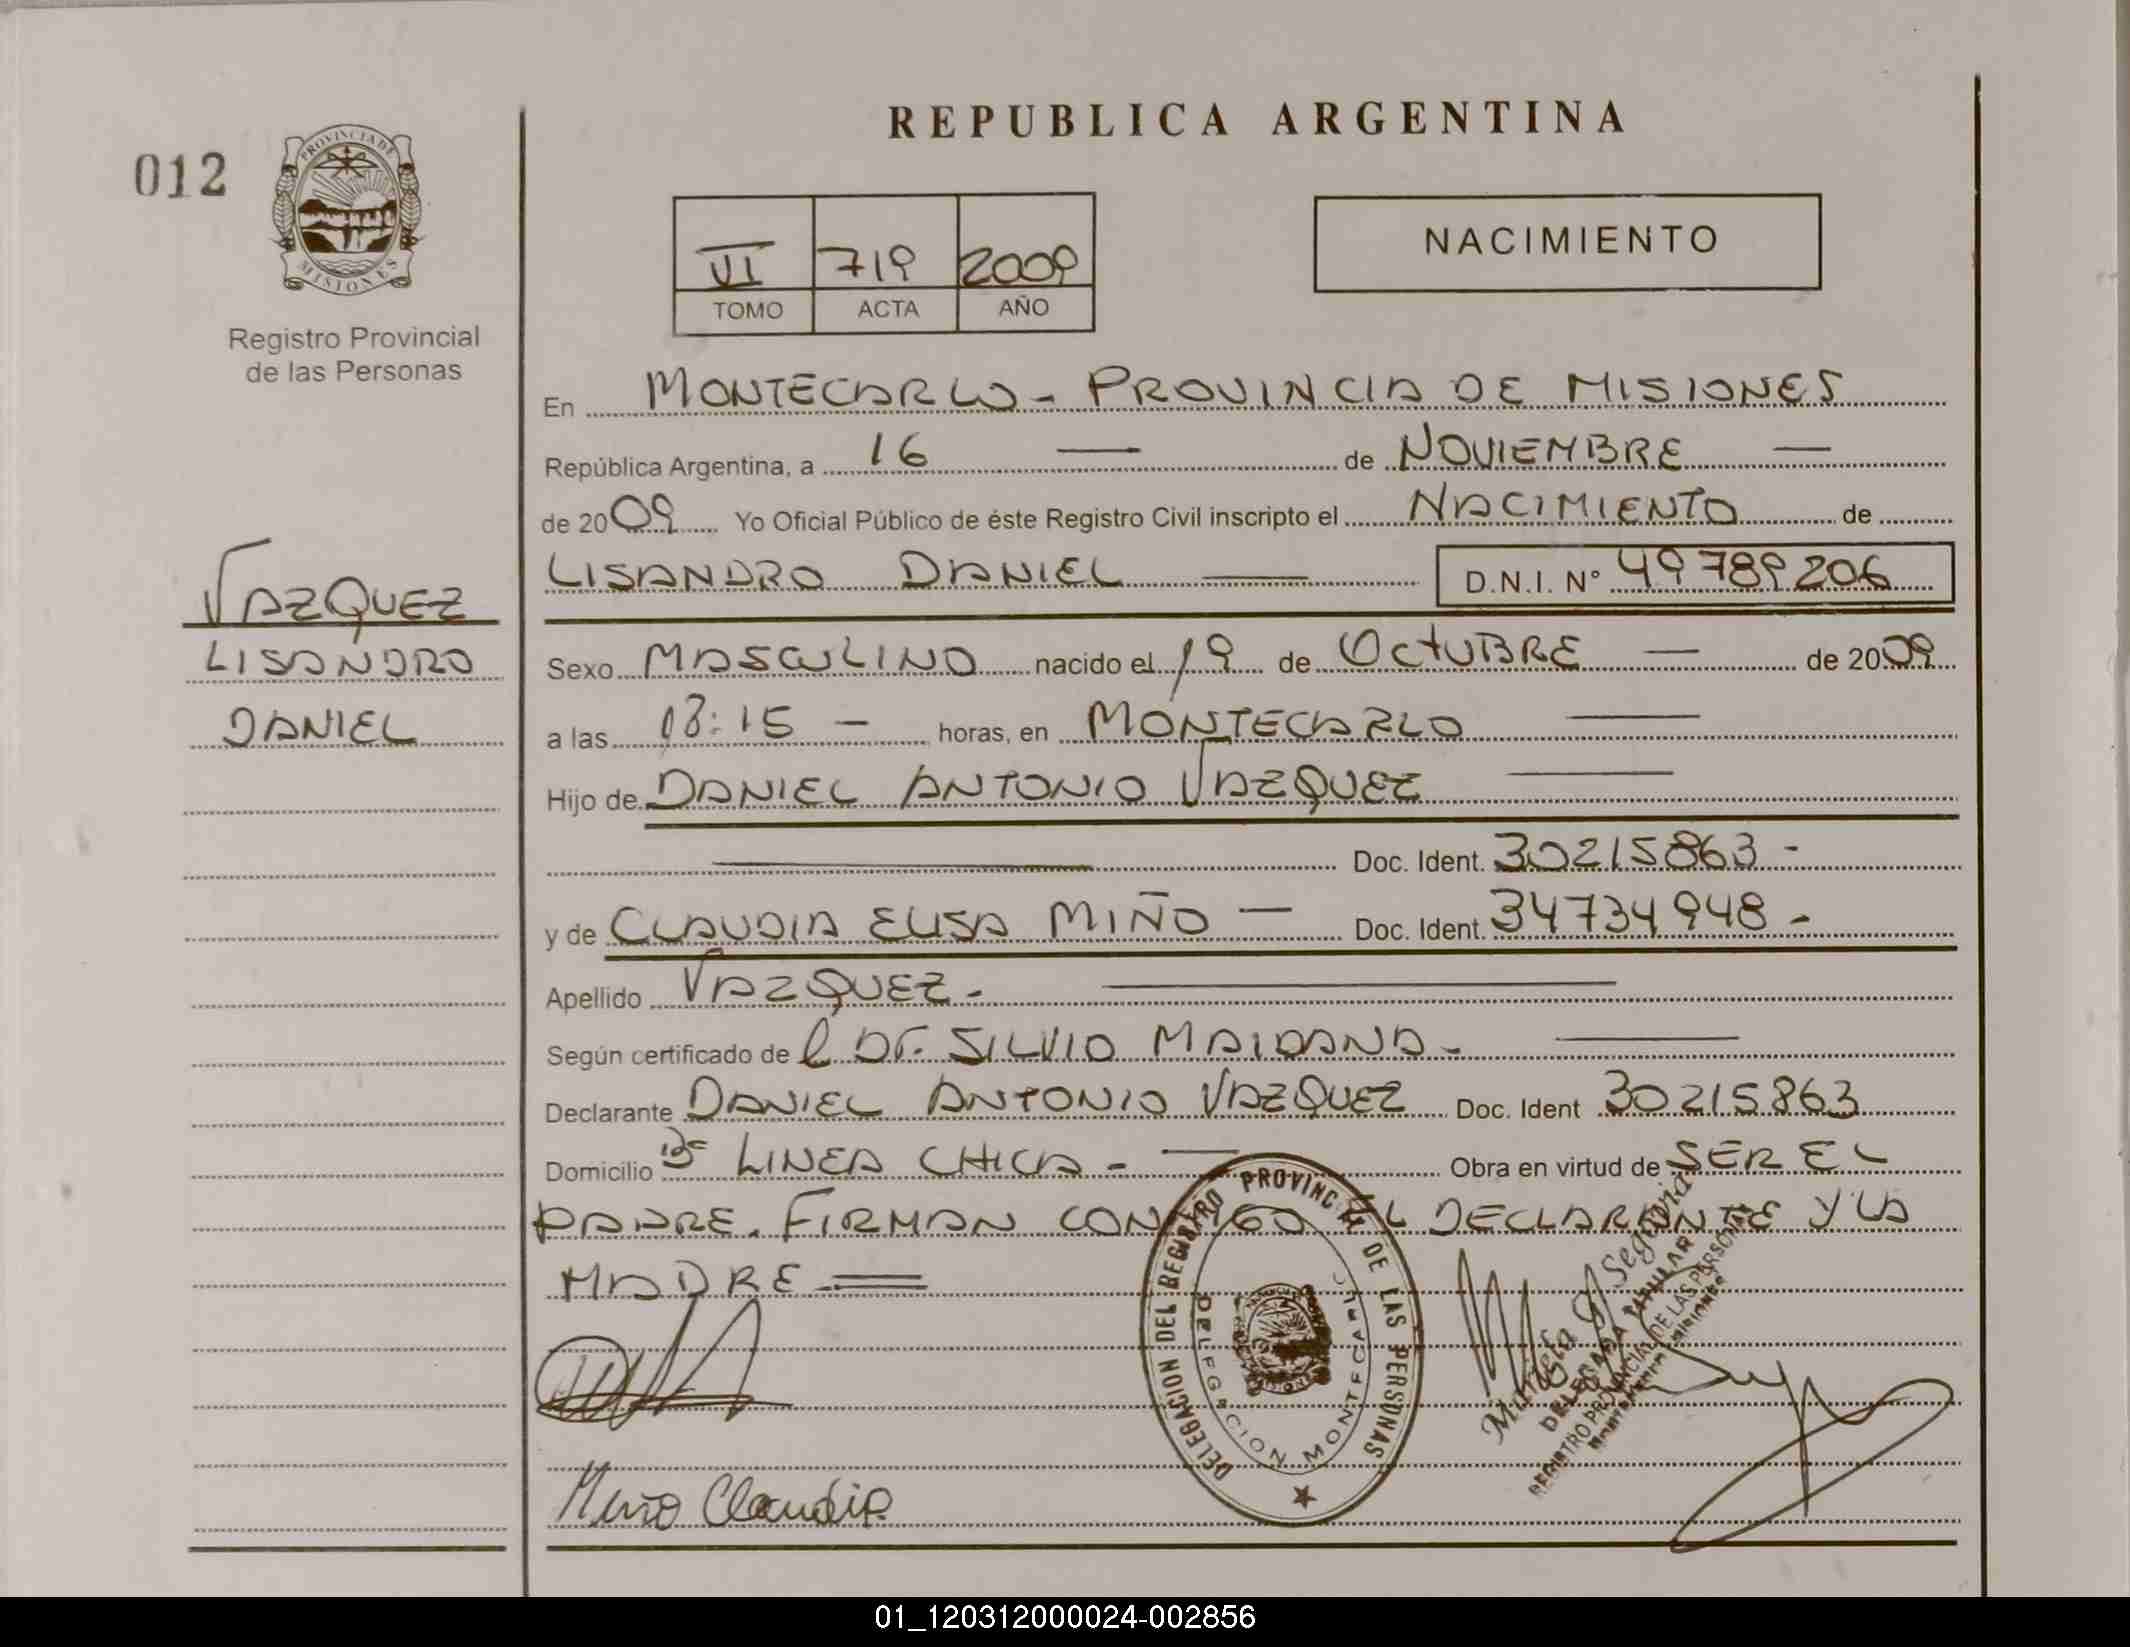 REPUBLICA ARGENTINA
012
PROVINCIA DE
MISIONES
Registro Provincial
de las Personas
VI 719 2009
TOMO ACTA AÑO
NACIMIENTO
VAZQUEZ
LISANDRO
DANIEL
En MONTECARLO - PROVINCIA DE MISIONES
República Argentina, a 16 — de NOVIEMBRE —
de 2009 Yo Oficial Público de éste Registro Civil inscripto el NACIMIENTO de
LISANDRO DANIEL — D.N.I. N° 49789206
Sexo MASCULINO nacido el 19 de OCTUBRE — de 2009
a las 08:15 — horas, en MONTECARLO —
Hijo de DANIEL ANTONIO VAZQUEZ —
— Doc. Ident. 30215863 -
y de CLAUDIA ELISA MIÑO — Doc. Ident. 34734948 -
Apellido VAZQUEZ - —
Según certificado de l Dr. SILVIO MAIDANA - —
Declarante DANIEL ANTONIO VAZQUEZ Doc. Ident 30215863
Domicilio Bº LINEA CHICA - — Obra en virtud de SER EL
PADRE. FIRMAN CONMIGO EL DECLARANTE Y LA
MADRE
DELEGACION DEL REGISTRO PROVINCIAL DE LAS PERSONAS
DELEGACION MONTECARLO
DELEGADA TITULAR
REGISTRO PROVINCIAL DE LAS PERSONAS
Miño Claudia
01_120312000024-002856